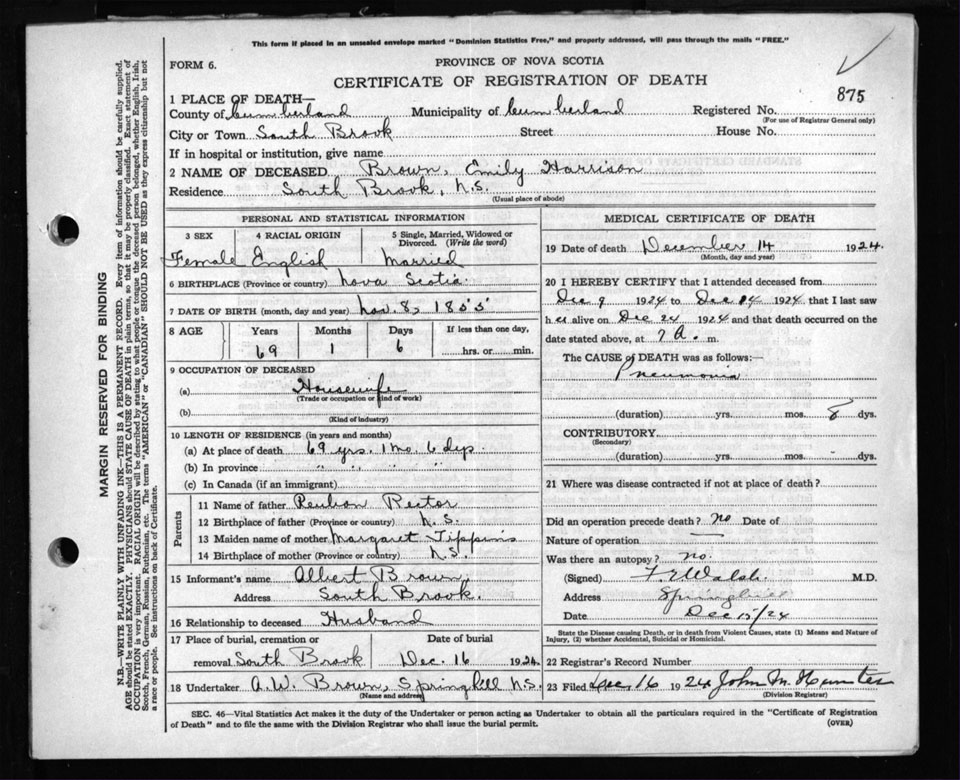 This form if placed in an unsealed envelope marked "Dominion Statistics Free," and properly addressed, will pass through the mails "FREE."
FORM 6.
PROVINCE OF NOVA SCOTIA
CERTIFICATE OF REGISTRATION OF DEATH
875
1 PLACE OF DEATH—
County of Cumberland Municipality of Cumberland Registered No.
(For use of Registrar General only)
City or Town South Brook Street House No.
If in hospital or institution, give name
2 NAME OF DECEASED Brown, Emily Harrison
Residence South Brook, N.S.
(Usual place of abode)
PERSONAL AND STATISTICAL INFORMATION
3 SEX 4 RACIAL ORIGIN 5 Single, Married, Widowed or Divorced. (Write the word)
Female English Married
6 BIRTHPLACE (Province or country) Nova Scotia
7 DATE OF BIRTH (month, day and year) Nov. 8, 1855
8 AGE Years Months Days If less than one day,
69 1 6 hrs. or min.
9 OCCUPATION OF DECEASED
(a) Housewife
(Trade or occupation or kind of work)
(b)
(Kind of industry)
10 LENGTH OF RESIDENCE (in years and months)
(a) At place of death 69 yrs. 1 mo. 6 dys.
(b) In province " " " "
(c) In Canada (if an immigrant)
Parents
11 Name of father Reubon Rector
12 Birthplace of father (Province or country) N.S.
13 Maiden name of mother Margaret Tippins
14 Birthplace of mother (Province or country) N.S.
15 Informant's name Albert Brown,
Address South Brook.
16 Relationship to deceased Husband
17 Place of burial, cremation or Date of burial
removal South Brook Dec. 16 1924
18 Undertaker A.W. Brown, Springhill N.S.
(Name and address)
MEDICAL CERTIFICATE OF DEATH
19 Date of death December 14 1924.
(Month, day and year)
20 I HEREBY CERTIFY that I attended deceased from
Dec 9 1924 to Dec 14 1924 that I last saw
her alive on Dec 24 1924 and that death occurred on
date stated above, at 7 A. m.
The CAUSE of DEATH was as follows:—
Pneumonia
(duration) yrs. mos. 8 dys.
CONTRIBUTORY
(Secondary)
(duration) yrs. mos. dys.
21 Where was disease contracted if not at place of death?
Did an operation precede death? no Date of
Nature of operation
Was there an autopsy? no.
(Signed) Walsh M.D.
Address Springhill
Date Dec 15/24
State the Disease causing Death, or in death from Violent Causes, state (1) Means and Nature of Injury, (2) whether Accidental, Suicidal or Homicidal.
22 Registrar's Record Number
23 Filed Dec 16 1924 John M. Hunter
(Division Registrar)
SEC. 46—Vital Statistics Act makes it the duty of the Undertaker or person acting as Undertaker to obtain all the particulars required in the "Certificate of Registration
of Death" and to file the same with the Division Registrar who shall issue the burial permit.
(OVER)
MARGIN RESERVED FOR BINDING
N.B.—WRITE PLAINLY WITH UNFADING INK—THIS IS A PERMANENT RECORD. Every item of information should be carefully supplied.
AGE should be stated EXACTLY. PHYSICIANS should STATE CAUSE OF DEATH in plain terms, so that it may be properly classified. Exact statement of
OCCUPATION is very important. RACIAL ORIGIN will be described by stating to what people or tongue the deceased person belonged, whether English, Irish,
Scotch, French, German, Russian, Ruthenian, etc. The terms "AMERICAN" or "CANADIAN" SHOULD NOT BE USED as they express citizenship but not
a race or people. See instructions on back of Certificate.